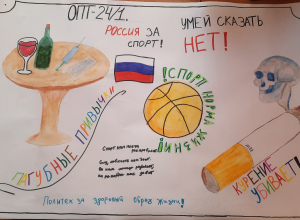 ОПТ-24/1.
РОССИЯ ЗА
СПОРТ!
УМЕЙ СКАЗАТЬ
НЕТ!
ПАГУБНЫЕ ПРИВЫЧКИ
!СПОРТ НОРМА ЖИЗНИ!
КУРЕНИЕ
УБИВАЕТ!
Политех за здоровый образ жизни!